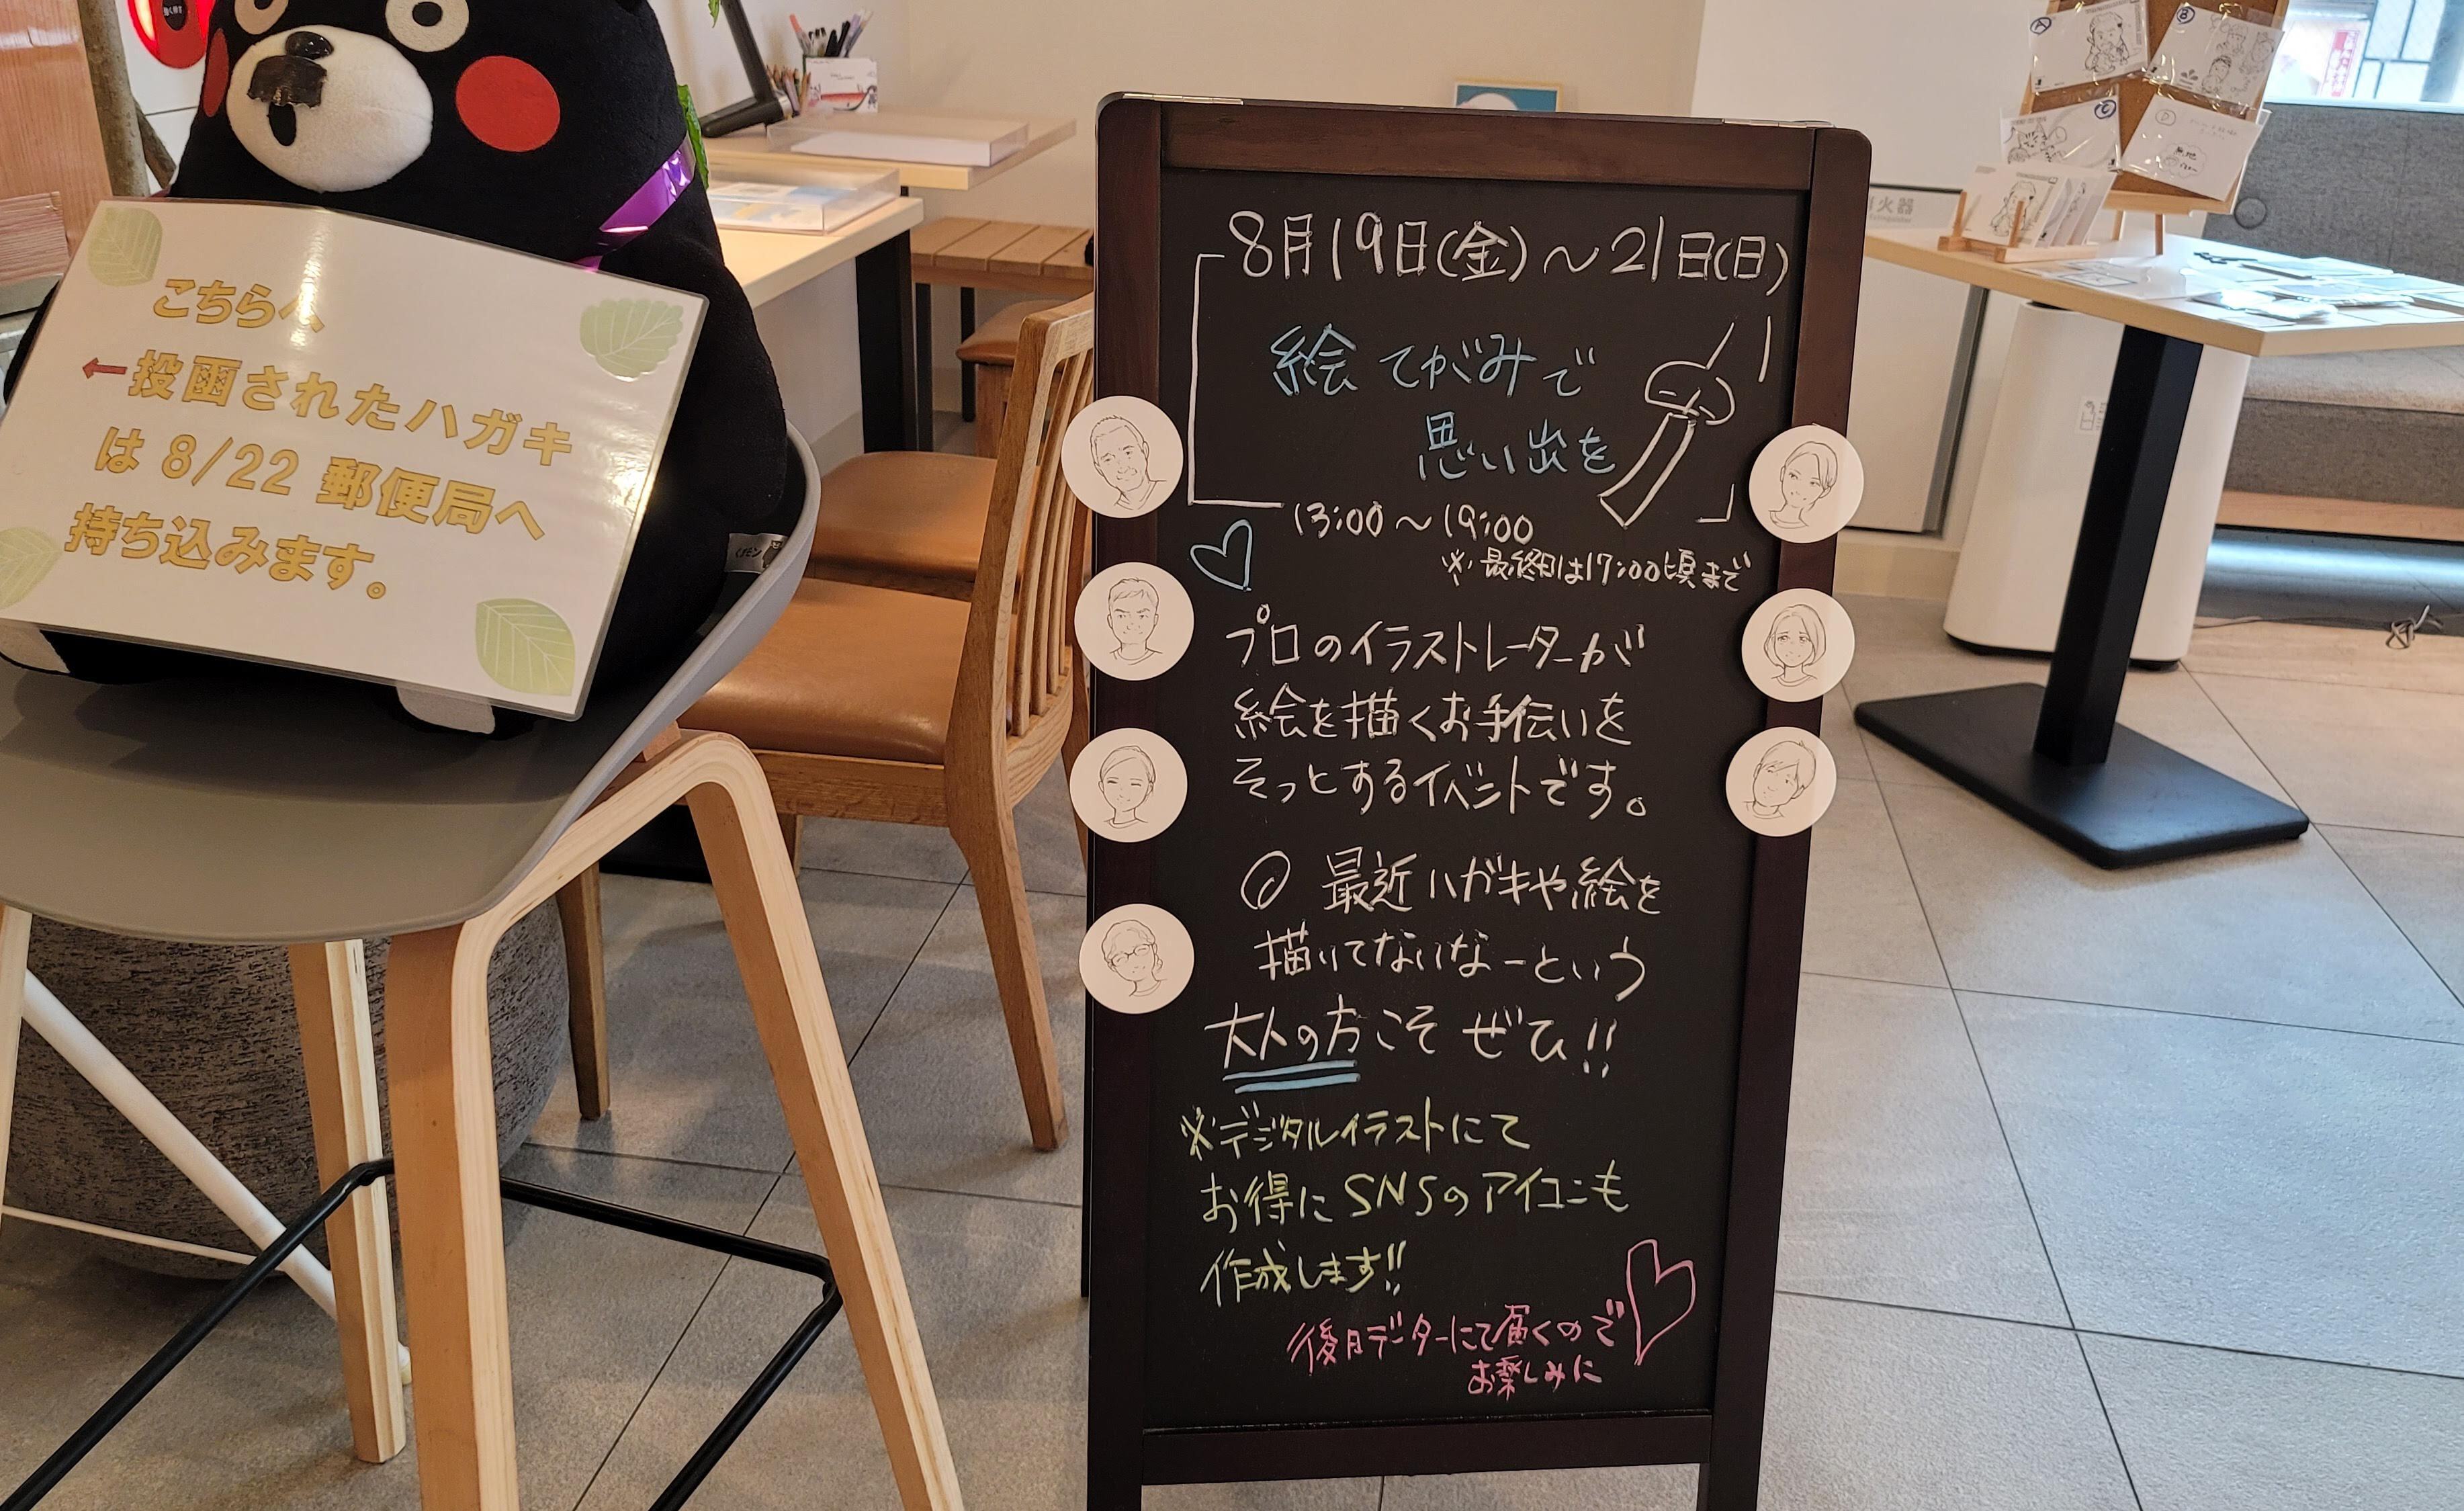 こちらへ
←投函されたハガキ
は 8/22 郵便局へ
持ち込みます。
くまモン
8月19日(金)～21日(日)
絵てがみで
思い出を
13:00～19:00
※最終日は17:00頃まで
プロのイラストレーターが
絵を描くお手伝いを
そっとするイベントです。
◎ 最近ハガキや絵を
描いてないなーという
大人の方こそ ぜひ!!
※デジタルイラストにて
お得にSNSのアイコンも
作成します!!
後日データーにて届くので
お楽しみに
火器
A
B
C
D